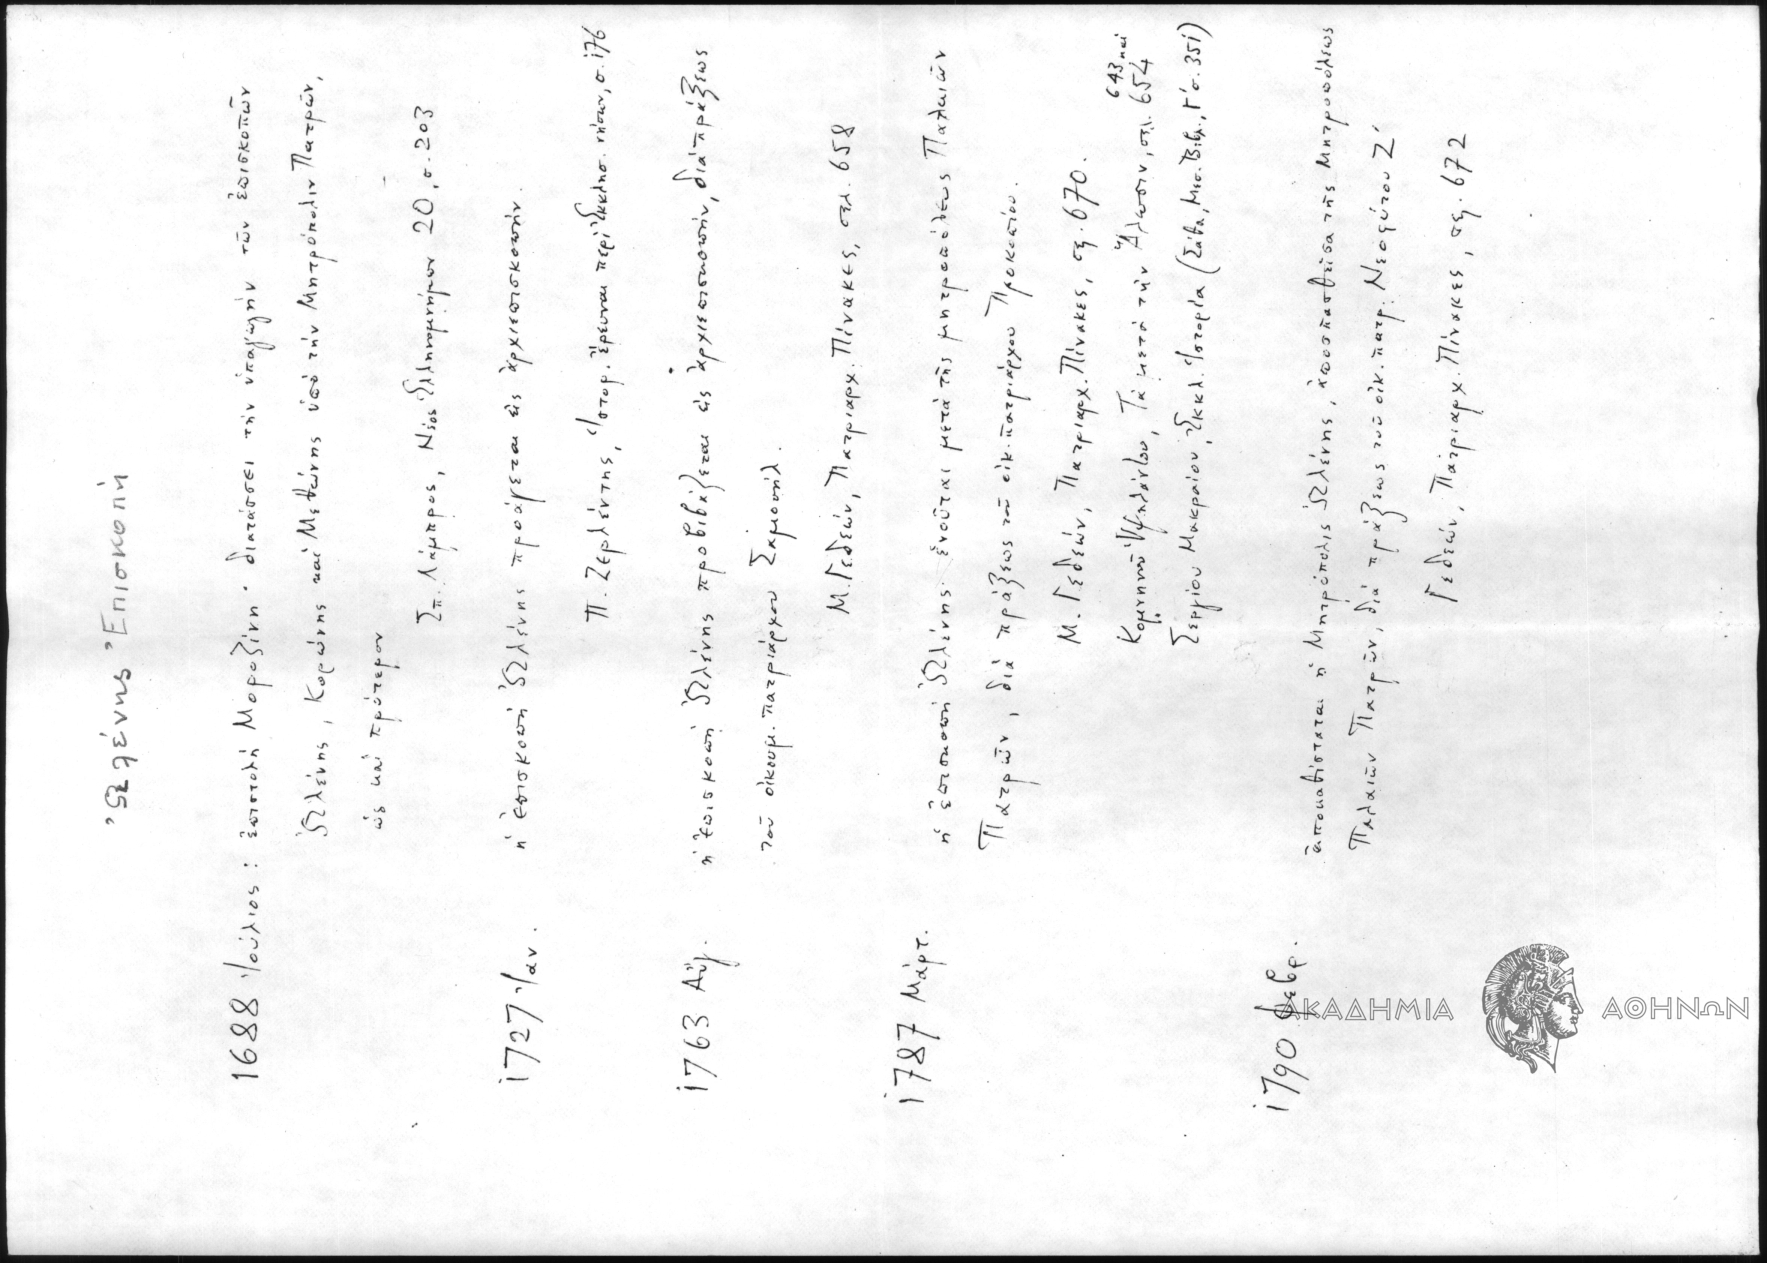 Ὠλένης Ἐπισκοπή
1688 Ἰούλιος : ἐπιστολὴ Μοροζίνη · διατάσσει τὴν ὑπαγωγὴν τῶν ἐπισκοπῶν
Ὠλένης, Κορώνης καὶ Μεθώνης ὑπὸ τὴν Μητρόπολιν Πατρῶν,
ὡς καὶ πρότερον
Σπ. Λάμπρος, Νέος Ἑλληνομνήμων 20, σ. 203
1727 Ἰαν. ἡ ἐπισκοπὴ Ὠλένης προάγεται εἰς ἀρχιεπισκοπήν.
Π. Ζερλέντης, Ἱστορ. ἔρευναι περὶ Ἐκκλησ. νήσων, σ. 176
1763 Αὔγ. ἡ ἐπισκοπὴ Ὠλένης προβιβάζεται εἰς ἀρχιεπισκοπήν, διὰ πράξεως
τοῦ οἰκουμ. πατριάρχου Σαμουήλ.
Μ. Γεδεών, Πατριαρχ. Πίνακες, στλ. 658
1787 Μάρτ. ἡ ἐπισκοπὴ Ὠλένης ἑνοῦται μετὰ τῆς μητροπόλεως Παλαιῶν
Πατρῶν, διὰ πράξεως τοῦ οἰκ. πατριάρχου Προκοπίου.
Μ. Γεδεών, Πατριαρχ. Πίνακες, σε. 670.
643 καὶ
Κομνηνοῦ Ὑψηλάντου, Τὰ μετὰ τὴν Ἅλωσιν, σελ. 654
Σεργίου Μακραίου, Ἐκκλ. Ἱστορία (Σάθα, Μεσ. Βιβλ, Γ' σ. 351)
1790 Φεβρ. ἀποκαθίσταται ἡ Μητρόπολις Ὠλένης, ἀποσπασθεῖσα τῆς Μητροπόλεως
Παλαιῶν Πατρῶν, διὰ πράξεως τοῦ οἰκ. πατρ. Νεοφύτου Ζ'
Γεδεών, Πατριαρχ. Πίνακες, σε. 672
ΑΚΑΔΗΜΙΑ ΑΘΗΝΩΝ